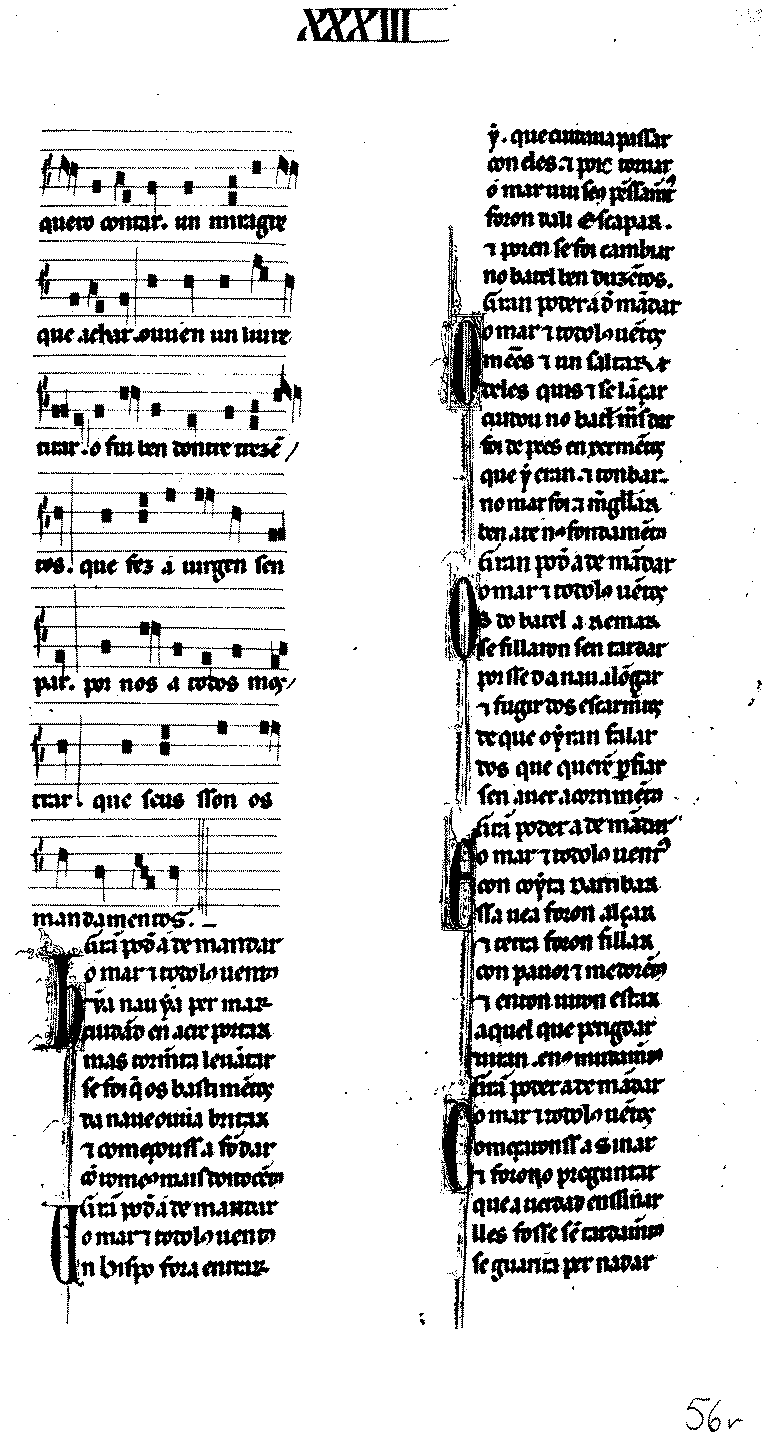 XXXIII
quero contar. un miragre
que achar. ouuíen un liure
tirar. o fui ben dontre trezẽ
tos. que fez a uirgen sen
par. por nos a todos mos
trar. que seus sson os
mandamentos.
Grã pod'á de mandar
o mar ⁊ todolos uentos
Hũa nau ýa per mar
cuidãd en acre portar
mas tormẽta leuãtar
se foi q̃ os bastimẽtos
da naue ouuia britar
⁊ começoussa fõdar
cõ romeos mais douocẽtos
Grã pod'á de mandar
o mar ⁊ todolos uentos
Un bispo fora entrar
ý. que cuidaua passar
con eles. ⁊ pois tornar
o mar uiu seos pẽssamẽtos
foron dali escapar.
⁊ poren se foi cambiar
no batel ben duzẽtos.
Gran poder á d̃ mãdar
o mar ⁊ todolos uẽtos
Omẽes ⁊ un saltar
deles quis ⁊ se lãçar
cuidou no batel mais dar
foi de pees en xermẽtos
que ý eran. ⁊ tonbar.
no mar foi ⁊ mergullar
ben ate nos fondamẽtos
Gran pod' á de mãdar
o mar ⁊ todolos uẽtos
Os do batel a remar
se fillaron sen tardar
por sse da nau alõgar
⁊ fugir dos escarmẽtos
de que oýran falar
dos que querẽ perfiar
sen auer acorrimẽtos
Grã poder á de mãdar
o mar ⁊ todolos uentos
E con coýta darribar
ssa uea foron alçar
⁊ terra foron fillar
con pauor ⁊ medorẽtos
⁊ enton uiron estar
aquel que perigoar
uiran enos mudamẽtos
Grã poder á de mãdar
o mar ⁊ todolos uẽtos
Começaronss a sinar
⁊ foronno preguntar
que a uerdad enssinar
lles fosse sẽ tardamẽtos
se guarira per nadar
56r